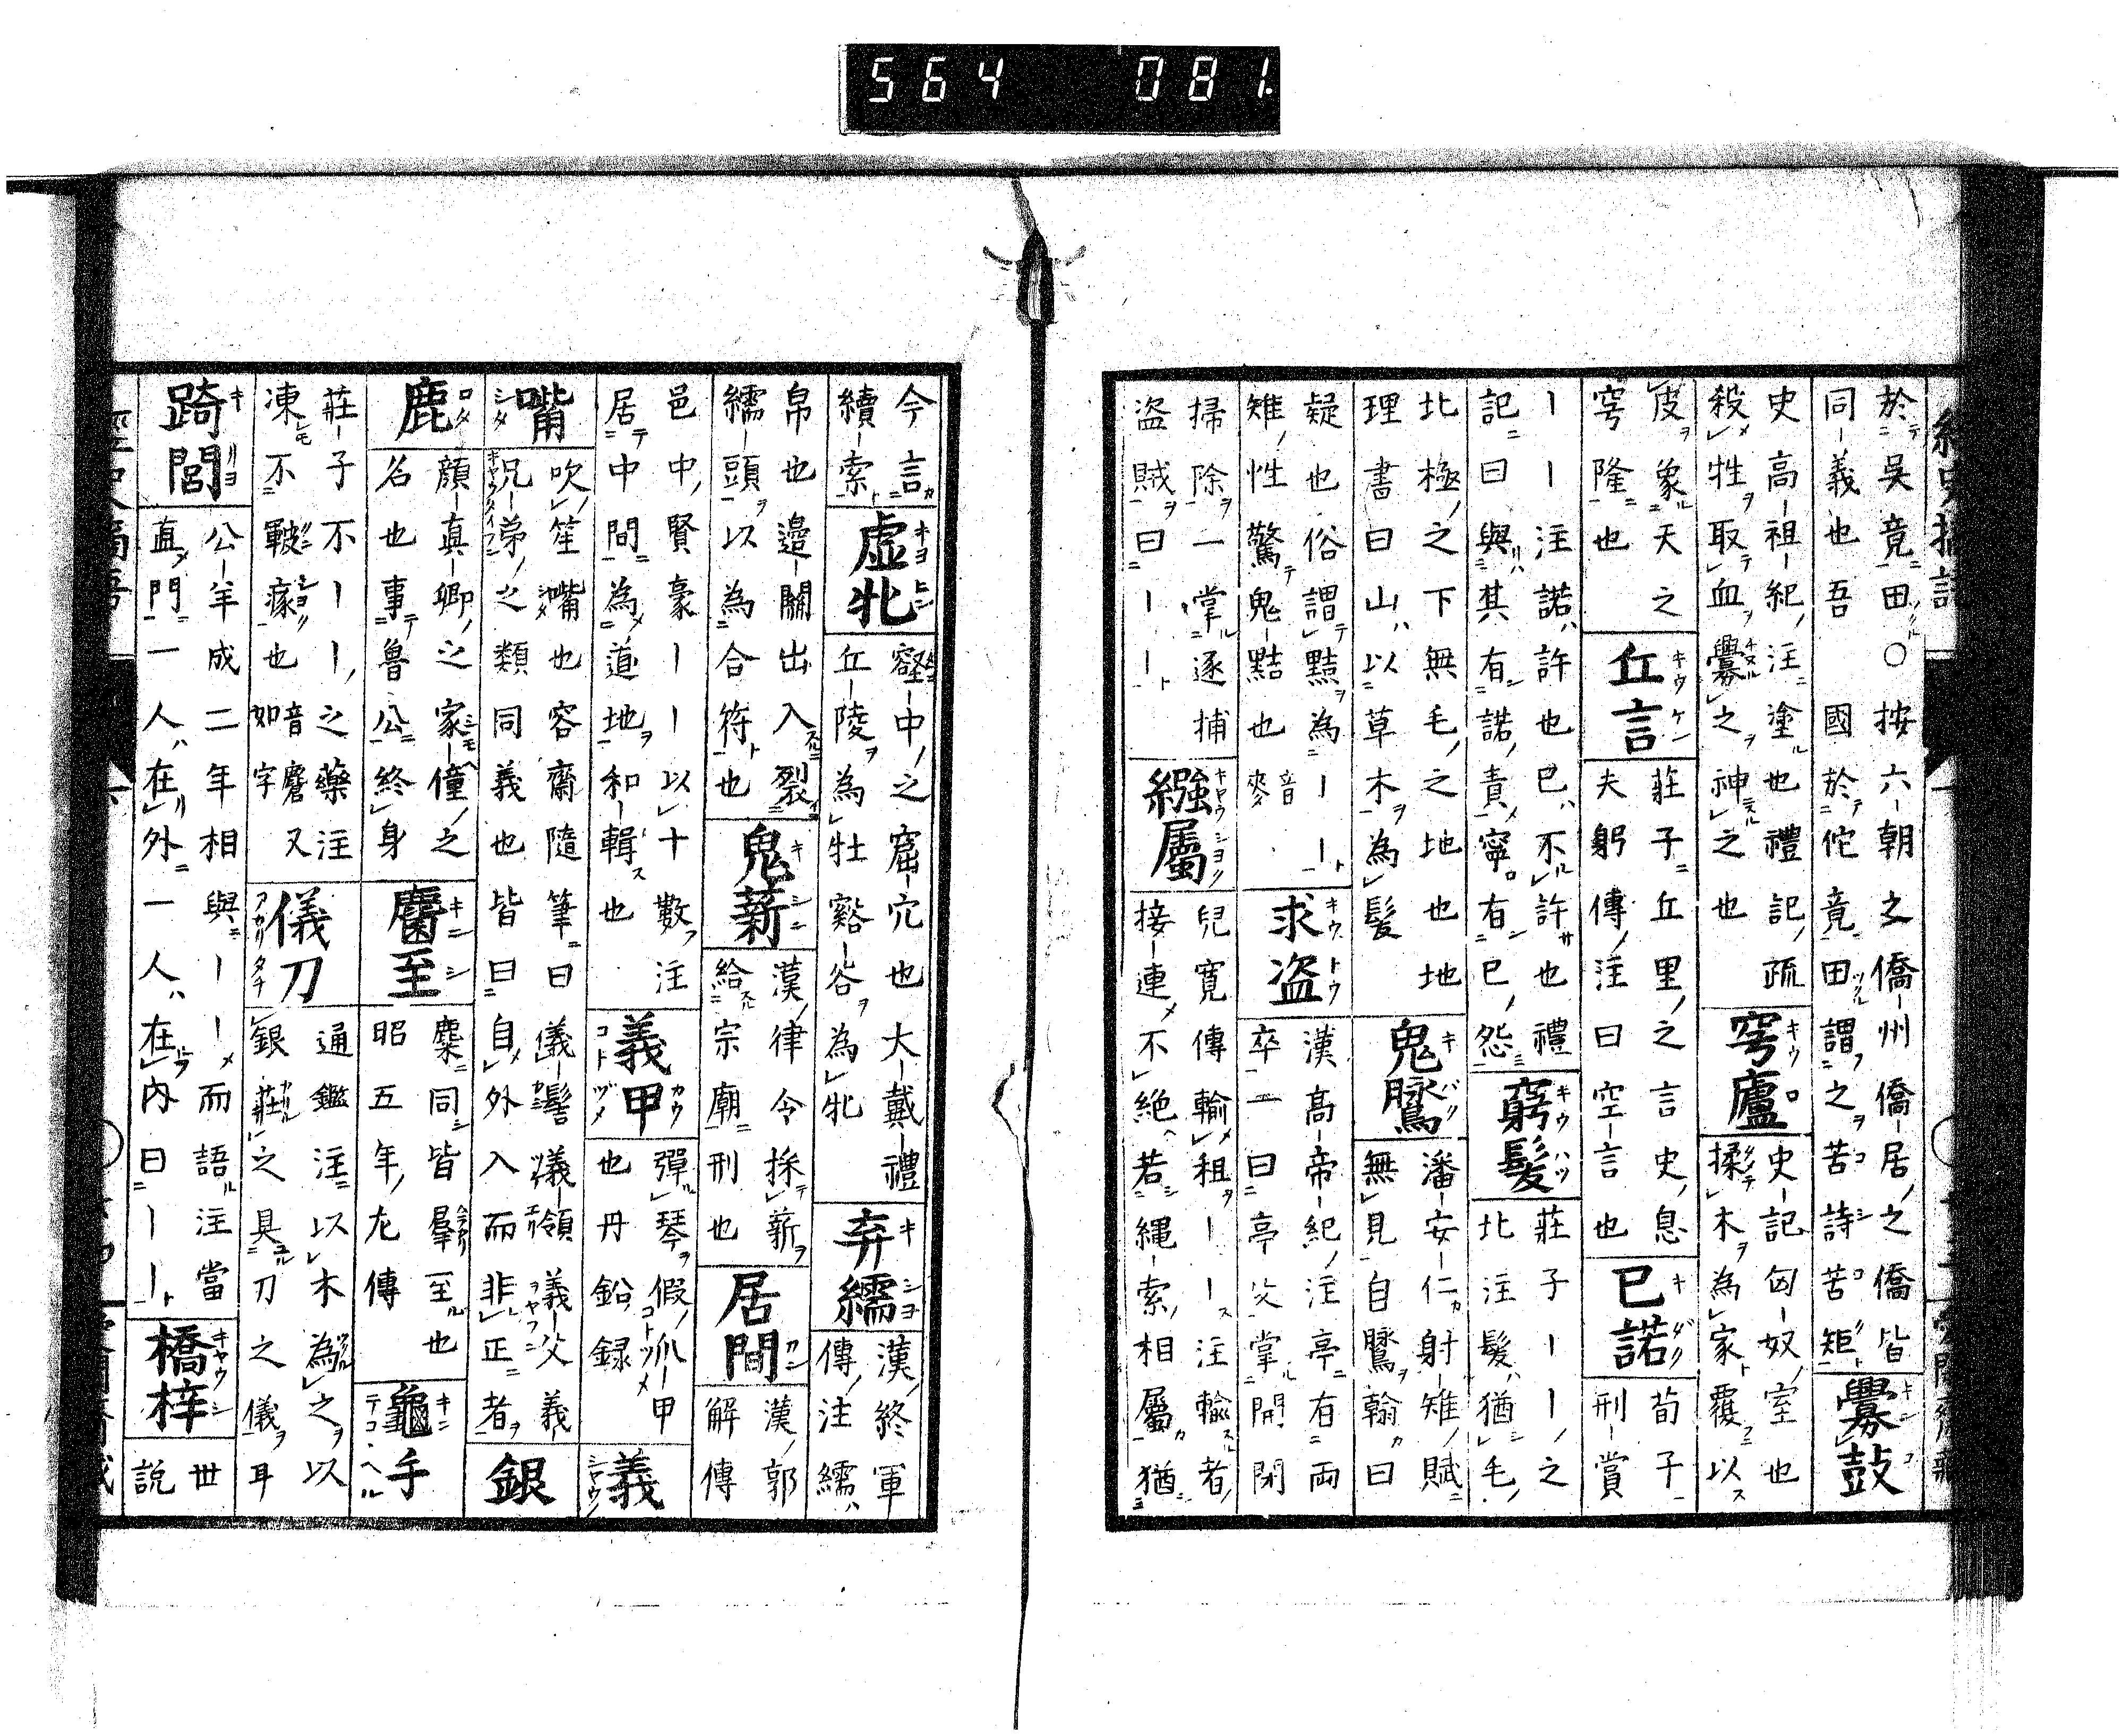 經史摘語
於吳竟田○按六朝之僑州僑居之僑皆
同義也吾國於佗竟田謂之苦詩苦矩
釁鼓
史高祖紀注塗也禮記疏
殺牲取血釁之神之也
穹廬
史記匈奴室也
揉木為家覆以
皮象天之
穹隆也
丘言
莊子丘里之言史息
夫躬傳注曰空言也
已諾
荀子
刑賞
ーー注諾許也已不許也禮
記曰與其有諾責寧有已怨
窮髮
莊子ーー之
北注髮猶毛
北極之下無毛之地也地
理書曰山以草木為髮
鬼
潘安仁射雉賦
無見自翰曰
疑也俗謂黠為ーー
雉性驚鬼黠也音麥
求盗
漢高帝紀注亭有兩
卒一曰亭父掌開閉
掃除一掌逐捕
盗賊曰ーー
繈屬
兒寬傳輸租ーー注輸者
接連不絕若繩索相屬猶
今言
續索
虛牝
谿中之窟穴也大戴禮
丘陵為牡谿谷為牝
弃繻
漢終軍
傳注繻
帛也邊關出入裂
繻頭以為合符也
鬼薪
漢律令採薪
給宗廟刑也
居間
漢郭
解傳
邑中賢豪ーー以十數注
居中間為道地和輯也
義甲
彈琴假爪甲
也丹鉛録
義
嘴
吹笙嘴也容齋隨筆曰義髻義領義父義
兄弟之類同義也皆曰自外入而非正者
銀
鹿
顏真卿之家僮之
名也事魯公終身
麕至
麇同皆羣至也
昭五年左傳
龜手
莊子不ーー之藥注
凍不皸瘃也音麐又如字
儀刀
通鑑注以木為之以
銀莊之具刀之儀耳
踦閭
公羊成二年相與ーー而語注當
直門一人在外一人在內曰ーー
橋梓
世
說